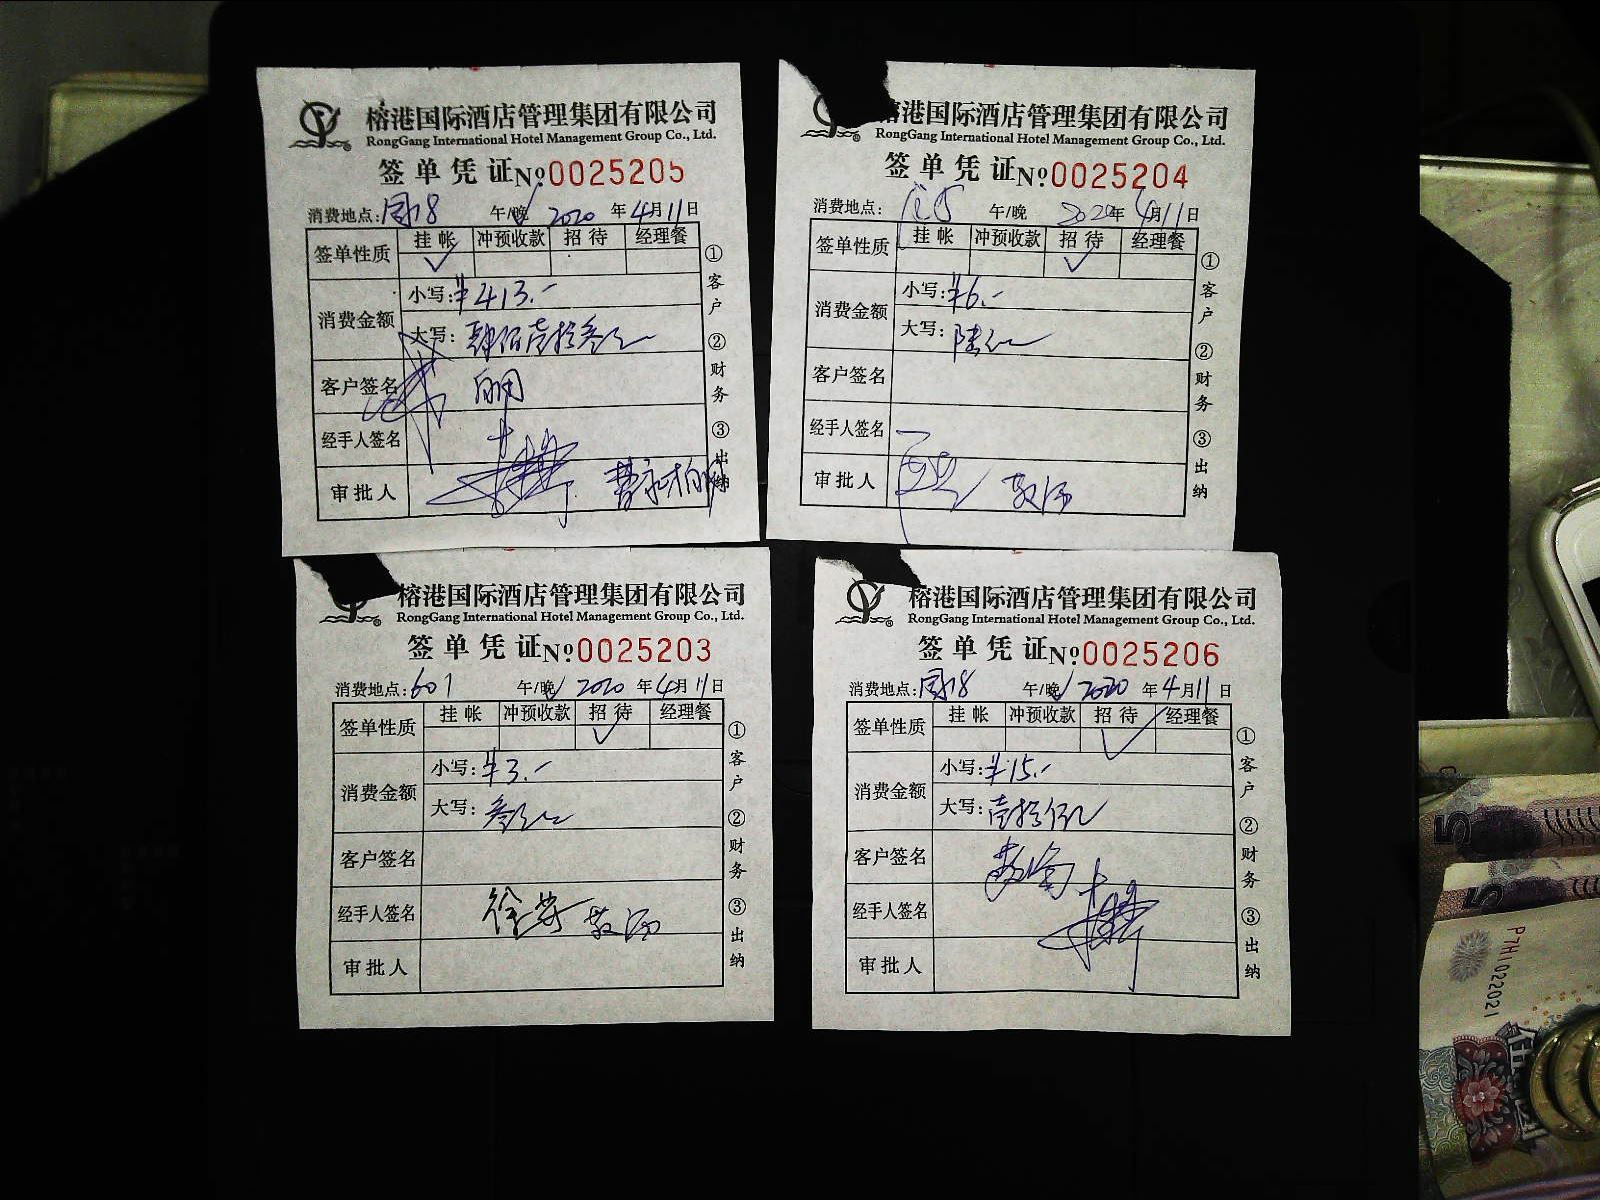 榕港国际酒店管理集团有限公司
RongGang International Hotel Management Group Co., Ltd.
签单凭证 №0025205
消费地点: 周18 午/晚 ✓ 2020 年 4月 11日
签单性质 挂帐 冲预收款 招待 经理餐
✓
消费金额 小写: ¥413.-
大写: 肆佰壹拾叁元
客户签名
经手人签名
审批人
①客户 ②财务 ③出纳
港国际酒店管理集团有限公司
RongGang International Hotel Management Group Co., Ltd.
签单凭证 №0025204
消费地点: 午/晚 2020年 4月11日
签单性质 挂帐 冲预收款 招待 经理餐
✓
消费金额 小写: ¥6.-
大写: 陆元
客户签名
经手人签名
审批人
①客户 ②财务 ③出纳
榕港国际酒店管理集团有限公司
RongGang International Hotel Management Group Co., Ltd.
签单凭证 №0025203
消费地点: 601 午/晚 ✓ 2020 年 4月 11日
签单性质 挂帐 冲预收款 招待 经理餐
✓
消费金额 小写: ¥3.-
大写: 叁元
客户签名
经手人签名
审批人
①客户 ②财务 ③出纳
榕港国际酒店管理集团有限公司
RongGang International Hotel Management Group Co., Ltd.
签单凭证 №0025206
消费地点: 周18 午/晚 ✓ 2020 年 4月11日
签单性质 挂帐 冲预收款 招待 经理餐
✓
消费金额 小写: ¥15.-
大写: 壹拾伍元
客户签名
经手人签名
审批人
①客户 ②财务 ③出纳
5
5
P7H1022021
伍